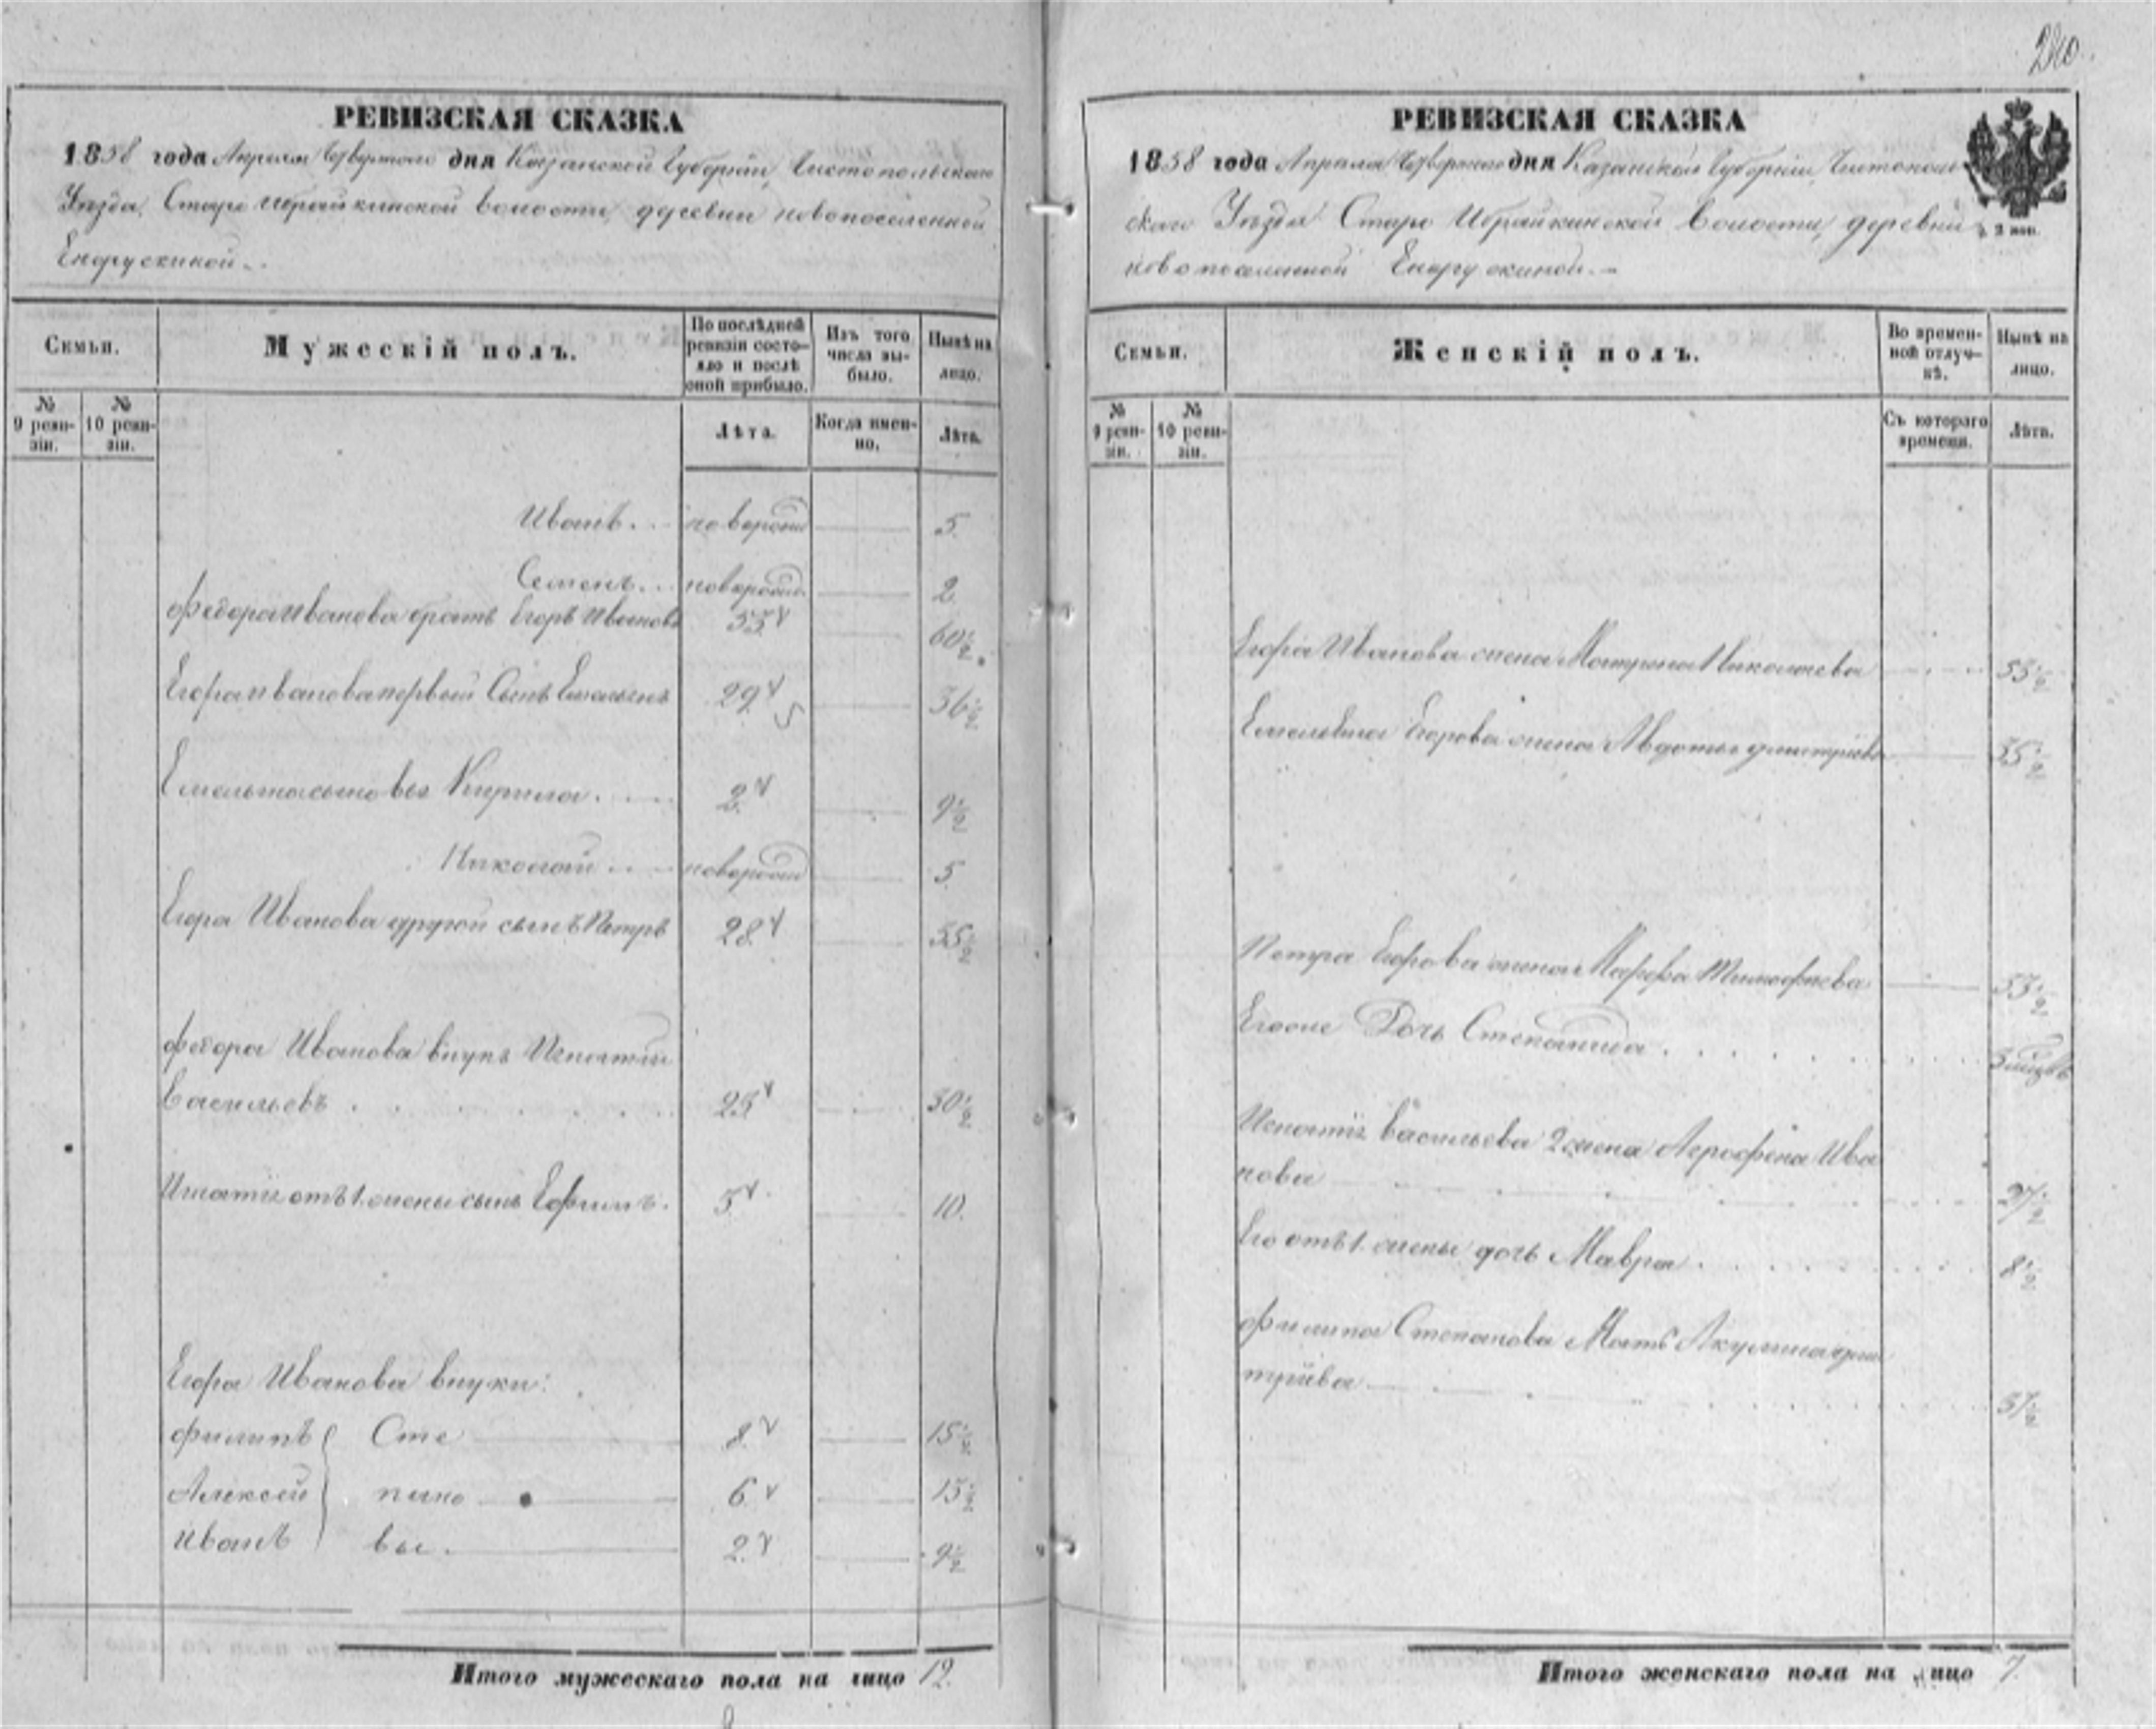 280.
РЕВИЗСКАЯ СКАЗКА
1858 года Апреля Четвертаго дня Казанской Губерніи, Чистопольскаго
Уѣзда, Старо Ибрайкинской волости, деревни новопоселенной
Енорускиной.
Семьи.
Мужескій полъ.
По послѣдней ревизіи состояло и послѣ оной прибыло.
Изъ того числа выбыло.
Нынѣ на лицо.
№ 9 ревизіи.
№ 10 ревизіи.
Лѣта.
Когда именно.
Лѣта.
Иванъ. новорожд 5.
Семенъ. новорожд. 2
Федора Иванова братъ Егоръ Ивановъ 53 60½.
Егора Иванова первый Сынъ Емельянъ 29 36½
Емельяна сыновья Кирила. 2. 9½
Николай новорожд 5.
Егора Иванова другой сынъ Петръ 28 35½
Федора Иванова внукъ Игнатій
Васильевъ 23 30½
Игнатія отъ 1. жены сынъ Ефимъ. 3 10.
Егора Иванова внуки:
Филипъ Сте 8 15½
Алексей пано 6 13½
Иванъ вы. 2. 9½
Итого мужескаго пола на лицо 12.
РЕВИЗСКАЯ СКАЗКА
1858 года Апреля Четвертаго дня Казанской Губерніи, Чистополь
скаго Уѣзда Старо Ибрайкинской волости, деревни
новопоселенной Енорускиной.
Семьи.
Женскій полъ.
Во временной отлучкѣ.
Нынѣ на лицо.
№ 9 ревизіи.
№ 10 ревизіи.
Съ котораго времени.
Лѣта.
Егора Иванова жена Матрена Николаева 53½
Емельяна Егорова жена Авдотья Дмитріева 35½
Петра Егорова жена Марфа Тимофѣева 33½
Егоже Дочь Степанида
Игнатія Васильева 2 жена Агрофена Ива
нова 27½
Его отъ 1. жены дочь Мавра 8½
Филипа Степанова Мать Акулина Дми
тріева 37½
Итого женскаго пола на лицо 7.